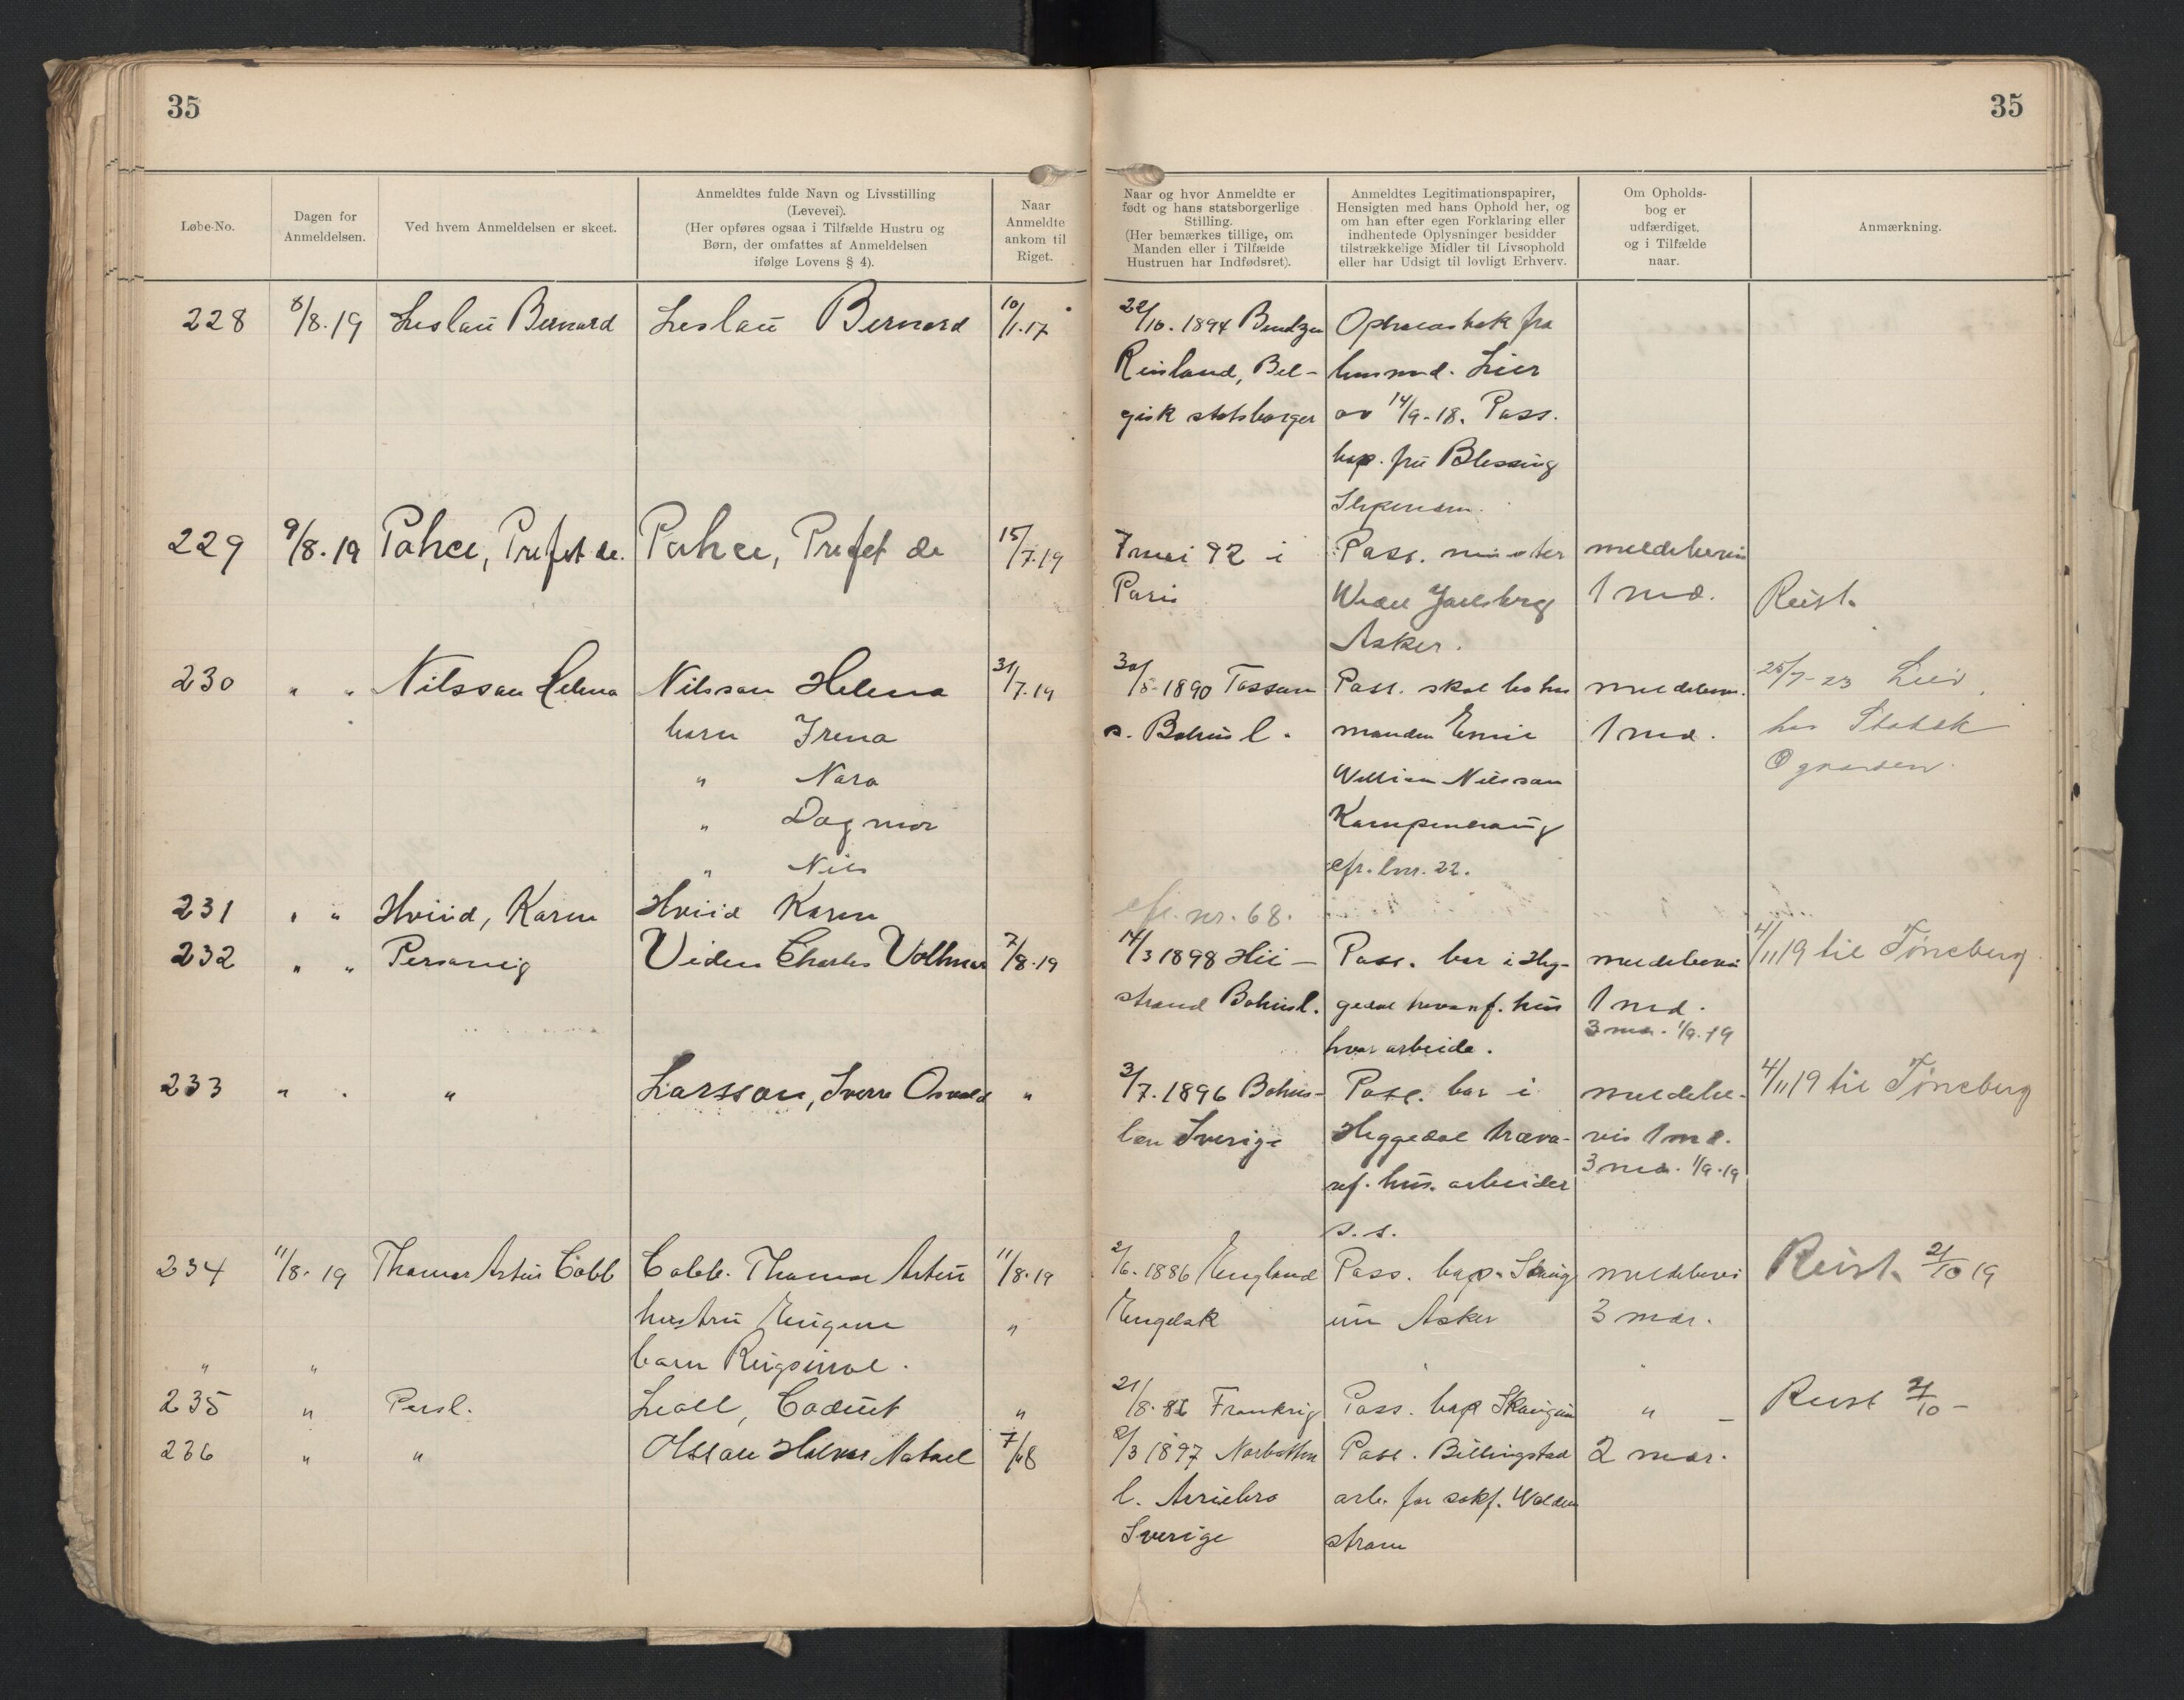 35
35
Løbe-No.
Dagen for
Anmeldelsen.
Ved hvem Anmeldelsen er skeet.
Anmeldtes fulde Navn og Livsstilling
(Levevei).
(Her opføres ogsaa i Tilfælde Hustru og
Børn, der omfattes af Anmeldelsen
ifølge Lovens § 4).
Naar
Anmeldte
ankom til
Riget.
Naar og hvor Anmeldte er
født og hans statsborgerlige
Stilling.
(Her bemærkes tillige, om
Manden eller i Tilfælde
Hustruen har Indfødsret).
Anmeldtes Legitimationspapirer,
Hensigten med hans Ophold her, og
om han efter egen Forklaring eller
indhentede Oplysninger besidder
tilstrækkelige Midler til Livsophold
eller har Udsigt til lovligt Erhverv.
Om Opholds-
bog er
udfærdiget,
og i Tilfælde
naar.
Anmærkning.
228 8/8.19 Leslau Bernard Leslau Bernard 10/1.17 22/10.1894 fra
Rinland, Bel- Lier
gisk statsborger av 14/9-18. Pass.
frü Blessing
229 9/8.19 Pahce, Prefet de. Pahce, Prefet de 15/7.19 7 mai 92 i Pass. minister meldebevis
Paris Wedel Jarlsberg 1 md. Reist.
Asker.
230 " " Nilsson Helena Nilsson Helena 31/7.19 30/5-1890 Tossum Pass. skal bo hos meldebevis. 25/7-23 Lier
barn Irena s. Bohusl. manden 1 md. hos
" Nara William Nilsson
" Dagmar
" Nils cfr. lnr. 22.
231 " " Hviid, Karen Hviid Karen cfr. nr. 68.
232 " " Personlig Viden Charles Vollmar 7/8.19 14/3 1898 Hü- Pass. bor i Heg- meldebevis 4/11 19 til Tønsberg
strand Bohusl. gedal trevaref. hus 1 md.
hvor arbeide. 3 mdr. 1/9.19
233 " " " Larsson, Sverre Osvald " 3/7.1896 Bohus- Pass. bor i meldebe- 4/11 19 til Tønsberg
len Sverige Heggedal træva- vis 1 md.
ref. hus. arbeider 3 mdr. 1/9.19
s.s.
234 11/8.19 Thomas Artur Cobb Cobb. Thomas Artur 11/8.19 2/6.1886 England Pass. bop. Skaug meldebevis Reist. 2/10 19
hustru Eugene " Engelsk um Asker 3 mdr.
" " barn
235 " Persl. Leall, " 21/8. Frankrig Pass. bop Skaugum " - Reist 2/10 -
236 " " Olsson Halvar Natael 7/8 2/3 1897 Norbotten Pass. Billingstad 2 mdr.
l. arb. for sakf. Walden
Sverige strøm